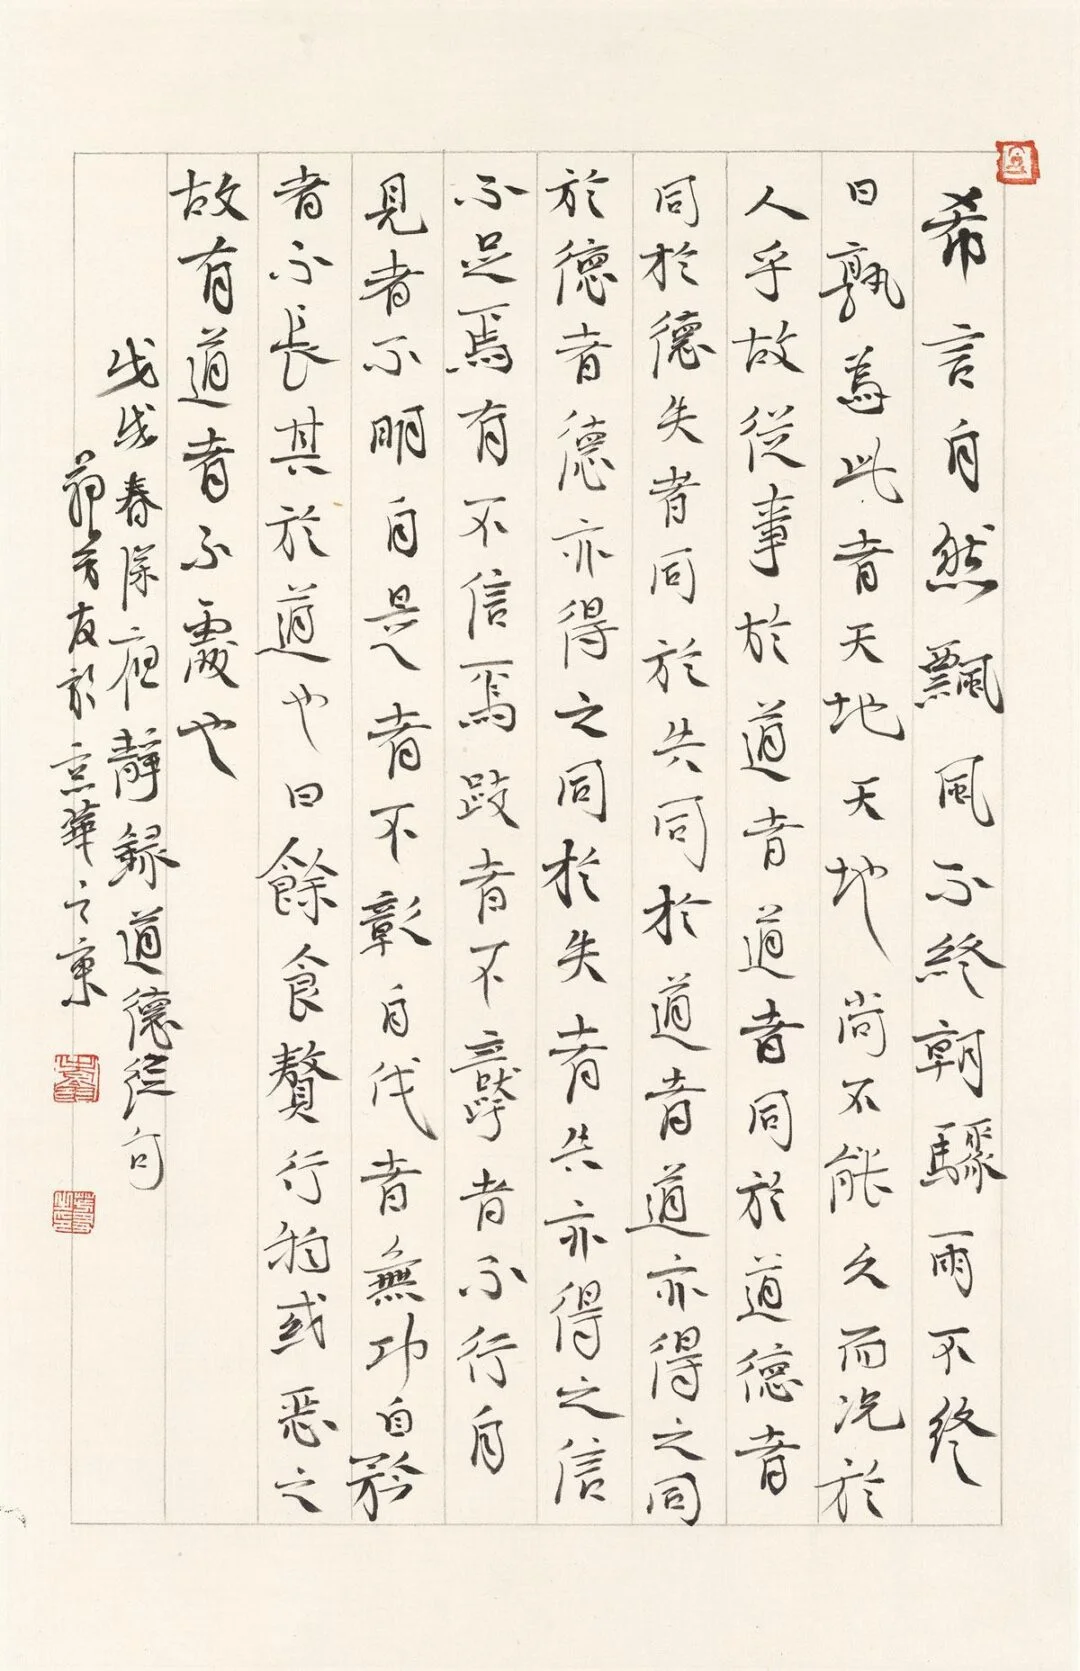 希言自然飄風不終朝驟雨不終
日孰為此者天地天地尚不能久而況於
人乎故從事於道者道者同於道德者
同於德失者同於失同於道者道亦得之同
於德者德亦得之同於失者失亦得之信
不足焉有不信焉跂者不
者不行自
見者不明自是者不彰自伐者無功自矜
者不長其於道也曰餘食贅行物或惡之
故有道者不處也
戊戌春深夜靜錄道德經句
方友於京華之東